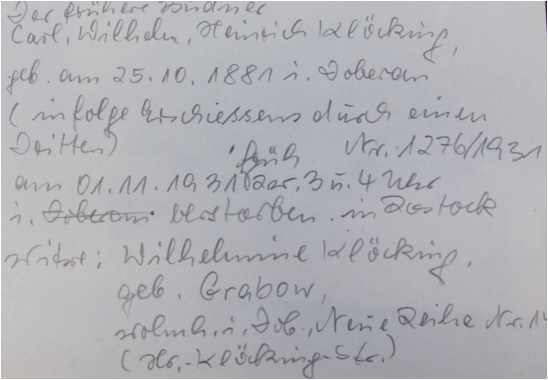 Der frühere Büdner
Carl, Wilhelm, Heinrich Klöcking,
geb. am 25.10.1881 i. Doberan
(infolge Erschiessens durch einen
Dritten) Nr. 1276/1931
früh
am 01.11.1931 zw. 3 u. 4 Uhr
i. Doberan verstorben in Rostock
Witwe: Wilhelmine Klöcking,
geb. Grabow,
wohnh. i. Dob., Neue Reihe Nr. 14
(Hr.-Klöcking-Str.)